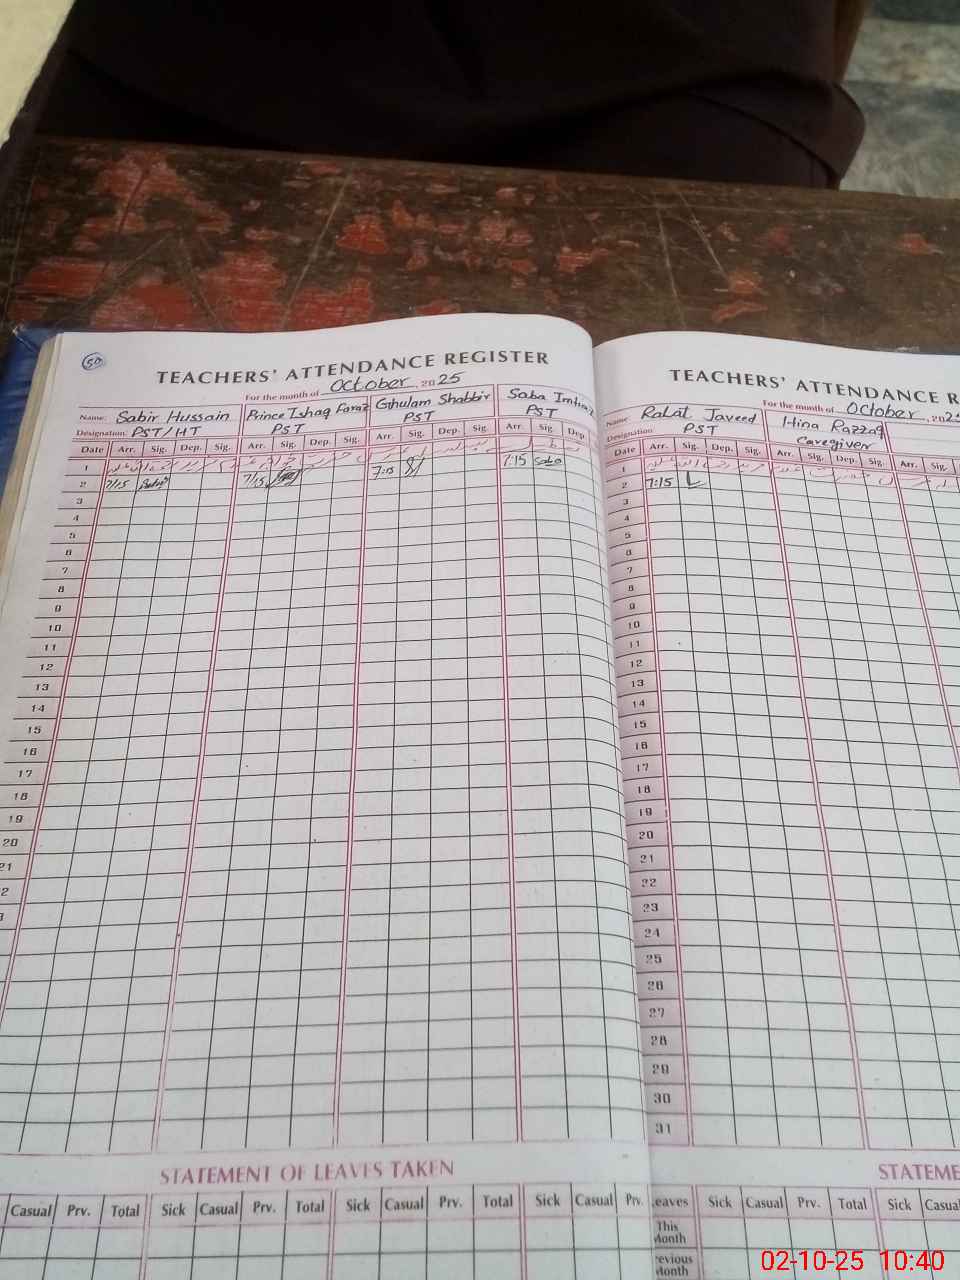 50
TEACHERS' ATTENDANCE REGISTER
For the month of October, 2025
Name: Sabir Hussain Prince Ishaq Faraz Ghulam Shabbir Saba Imtiaz
Designation: PST/HT PST PST PST
Date Arr. Sig. Dep. Sig. Arr. Sig. Dep. Sig. Arr. Sig. Dep. Sig. Arr. Sig. Dep.
1
2 7/15 Sabir 7/15 7:15 7:15 Saba
3
4
5
6
7
8
9
10
11
12
13
14
15
16
17
18
19
20
21
2
3
STATEMENT OF LEAVES TAKEN
Casual Prv. Total Sick Casual Prv. Total Sick Casual Prv. Total Sick Casual Prv.
TEACHERS' ATTENDANCE R
For the month of October, 202
Name: Javeed Hina Razzaq
Designation PST Caregiver
Date Arr. Sig. Dep. Sig. Arr. Sig. Dep. Sig. Arr. Sig.
1
2 7:15
3
4
5
6
7
8
9
10
11
12
13
14
15
16
17
18
19
20
21
22
23
24
25
26
27
28
29
30
31
STATEME
eaves Sick Casual Prv. Total Sick Casua
This
Month
evious
Month
02-10-25 10:40